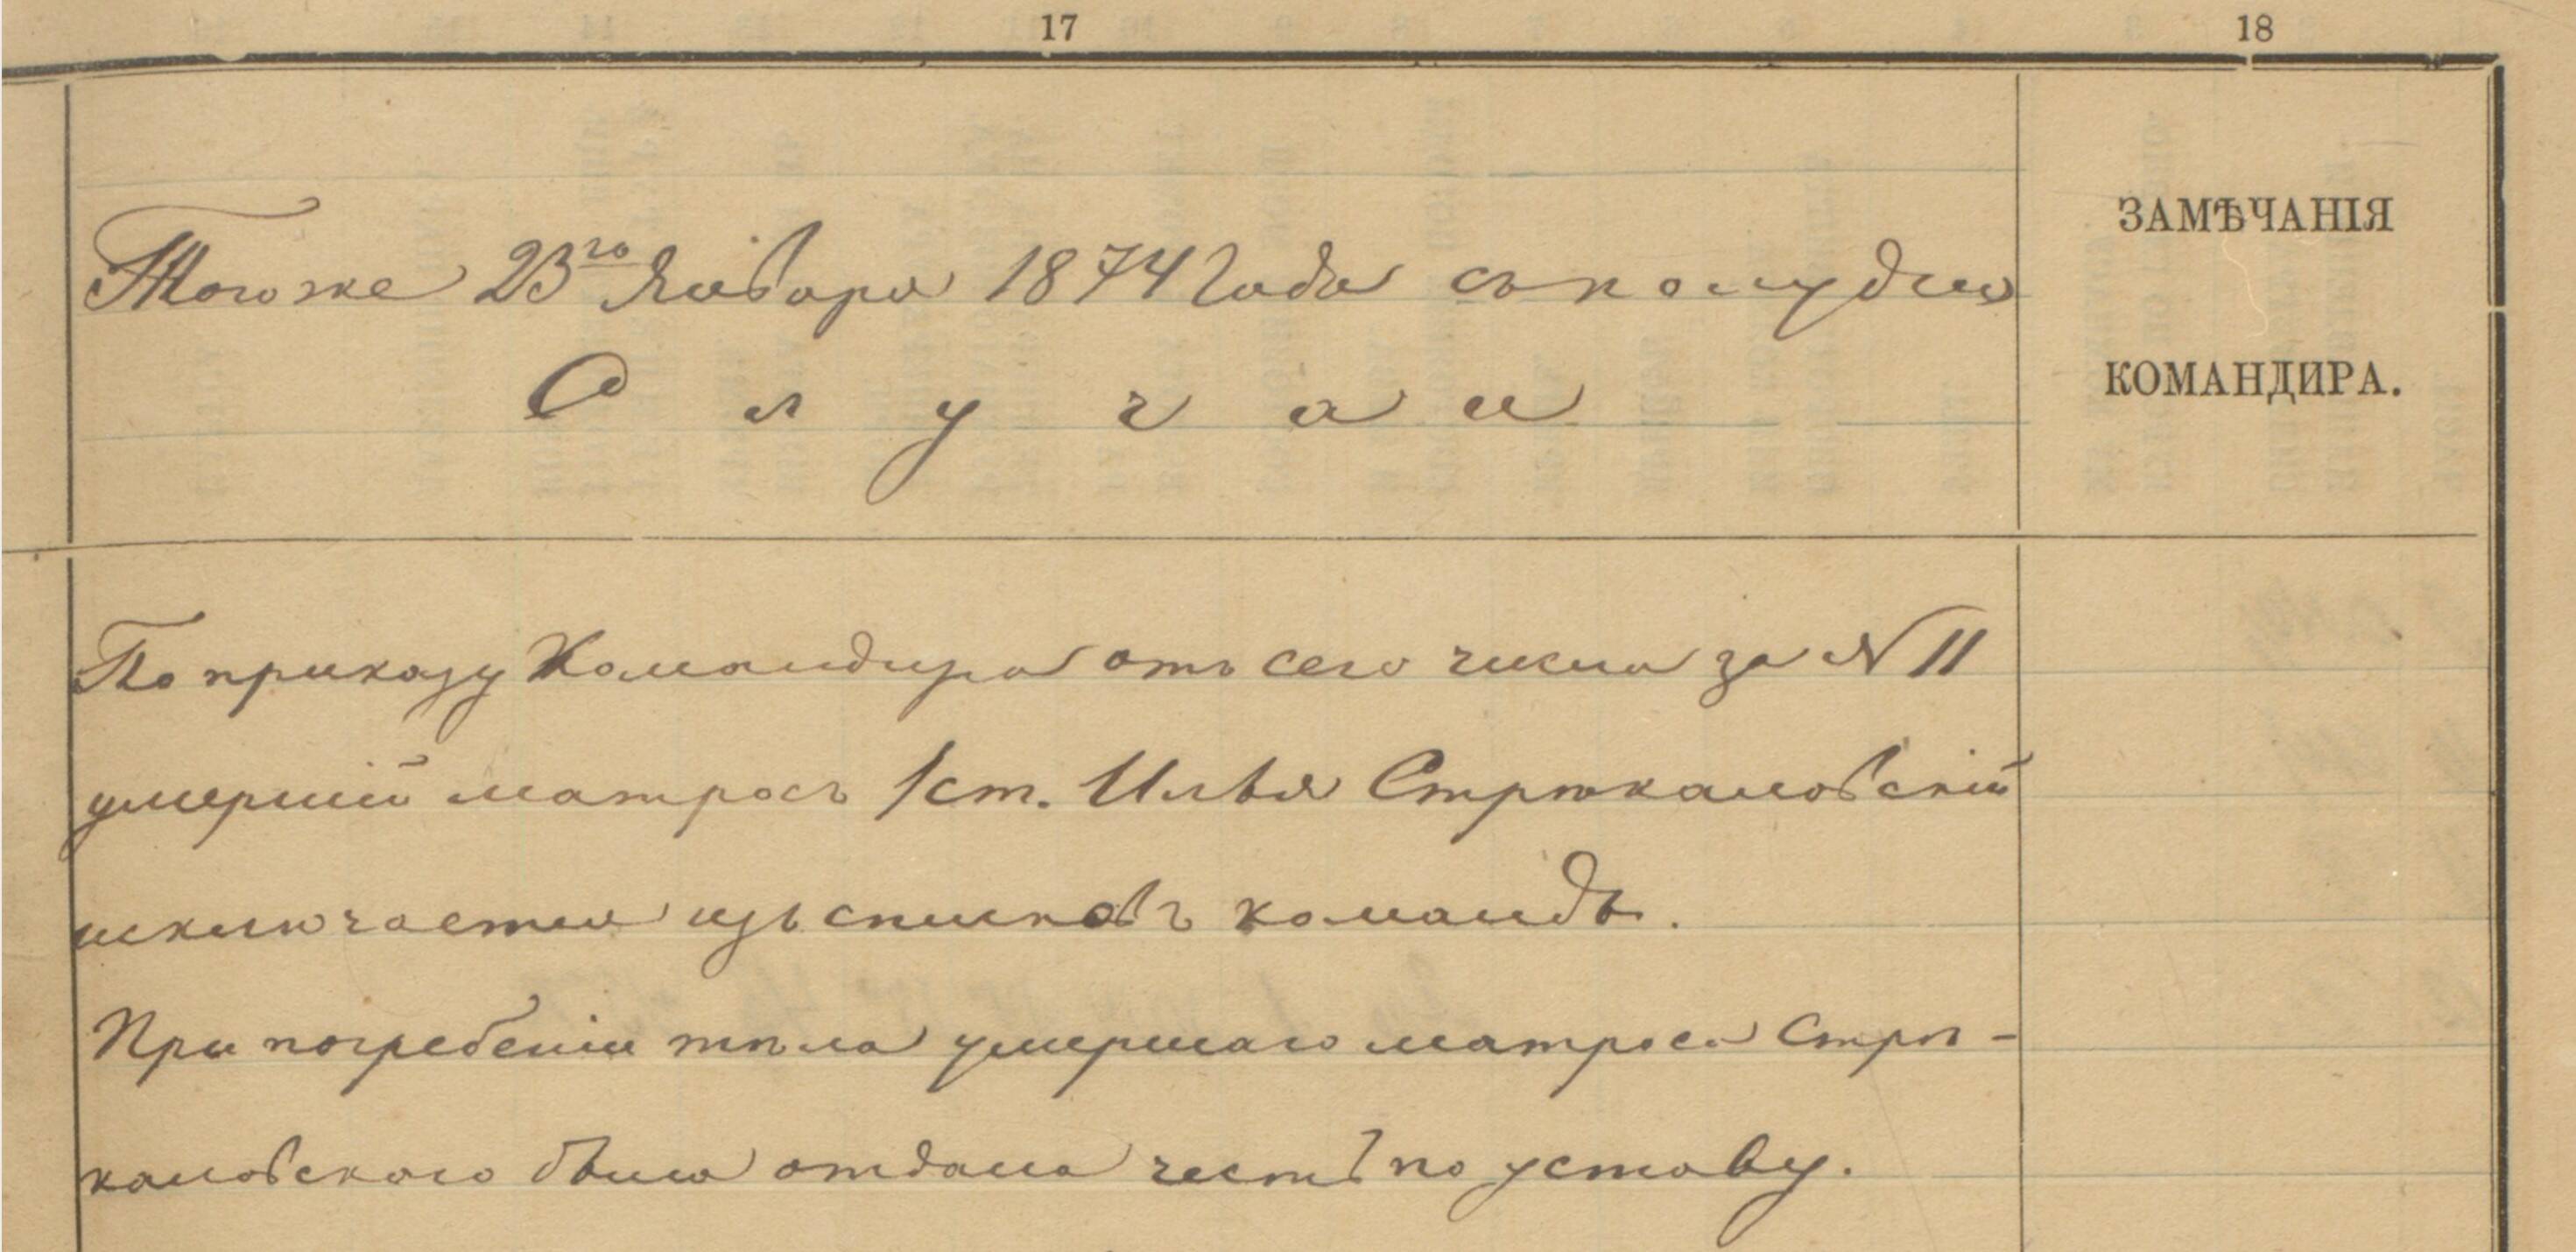 17
18
Тогоже 23го Января 1874 Года съ полудня
Случаи
ЗАМѢЧАНІЯ
КОМАНДИРА.
По приказу Командира отъ сего числа за N 11
умершій матросъ 1 ст. Илья Стрѣкаловскій
исключается изъ списковъ команды.
При погребеніи тѣла умершаго матроса Стрѣ-
каловского была отдана честь по уставу.